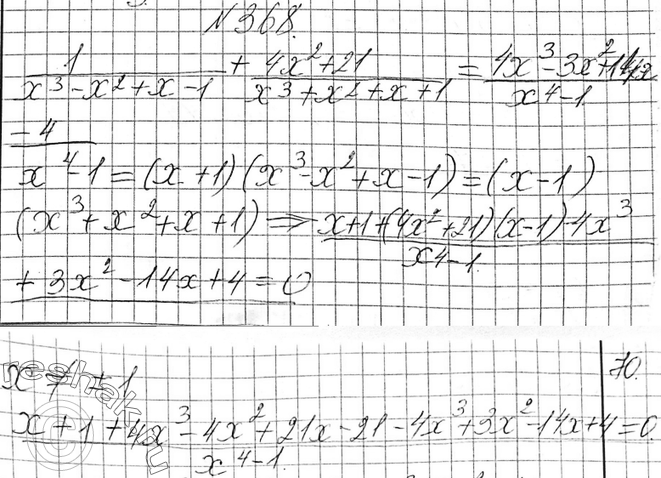 №368.
1/(x³-x²+x-1) + (4x²+21)/(x³+x²+x+1) = (4x³-3x²+14x
-4)/(x⁴-1)
x⁴-1=(x+1)(x³-x²+x-1)=(x-1)
(x³+x²+x+1) ⇒ (x+1+(4x²+21)(x-1)-4x³
+3x²-14x+4)/(x⁴-1)=0
x≠±1
70.
(x+1+4x³-4x²+21x-21-4x³+3x²-14x+4)/(x⁴-1)=0.
reshak.ru